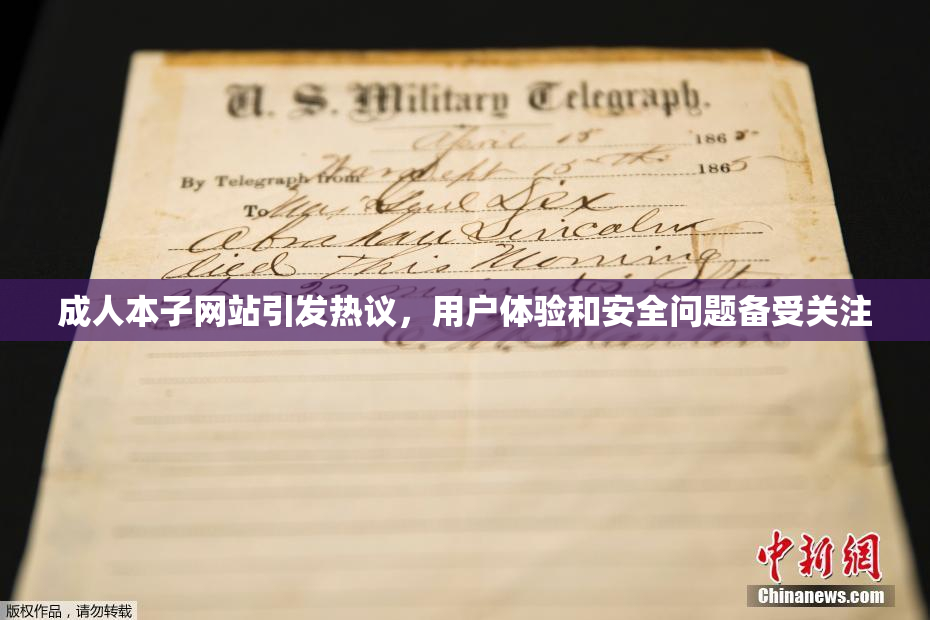 U. S. Military Telegraph.
April 15 1865
By Telegraph from War Dept 15th 1865
To Maj Genl Dix
Abraham Lincoln
died this morning
at 22 minutes after
成人本子网站引发热议，用户体验和安全问题备受关注
E. M. Stanton
中新網
Chinanews.com
版权作品，请勿转载